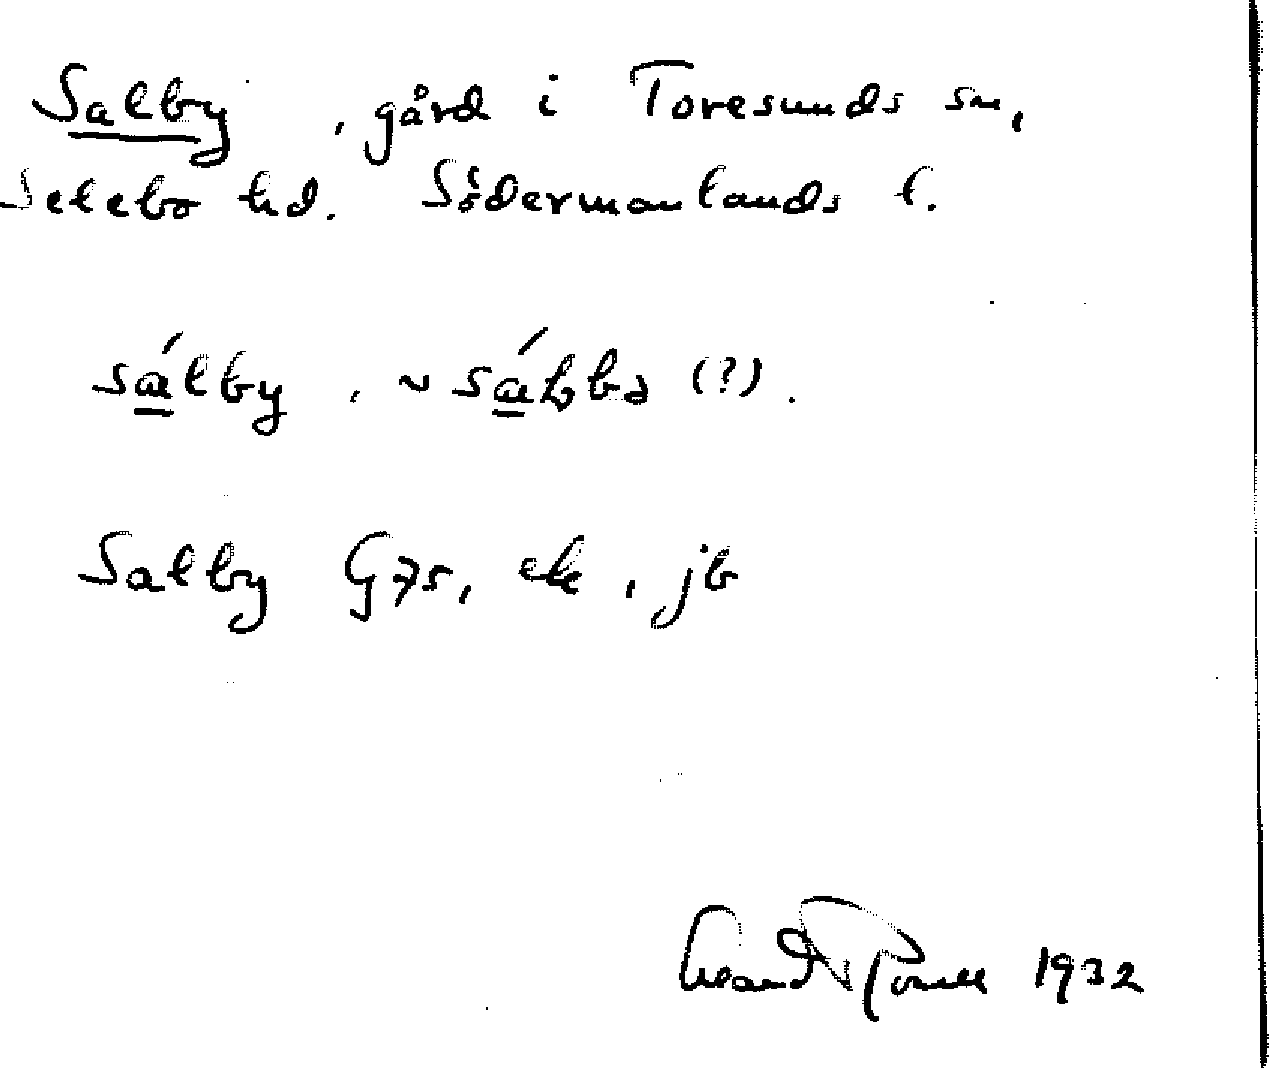 Salby, gård i Toresunds sn,
Selebo hd. Södermanlands l.
sá̲lby, ~ sá̲lbbə (?).
Salby G75, ek, jb
1932